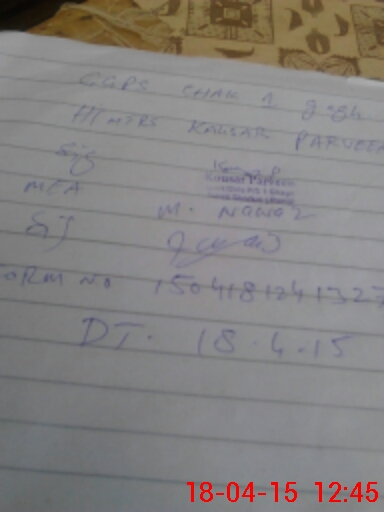 GGPS CHAK 1
HT MSRS KAUSAR PARVEEN
Sig
Kausar Parveen
MEA M. NAWAZ
Sig
FORM NO 1504181241327
DT. 18.4.15
18-04-15 12:45